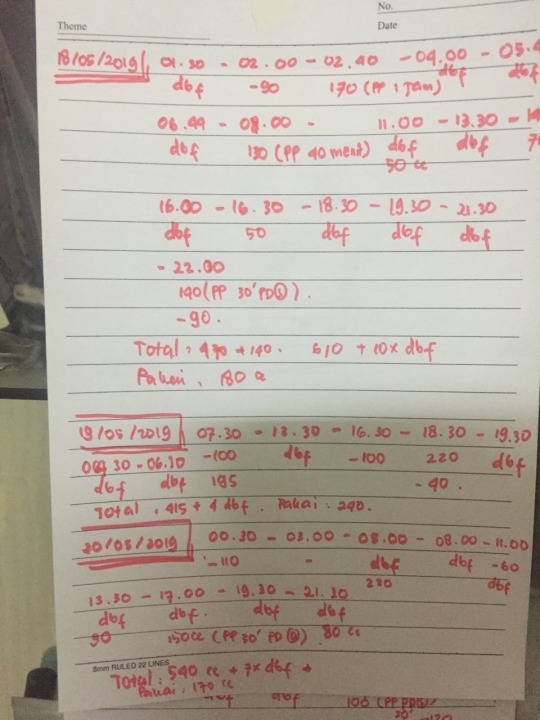 Theme
No.
Date
18/05/2019 01.30 - 02.00 - 02.40 - 04.00 - 05.4
dbf -90 170 (PP 1 Jam) dbf dbf
06.44 - 08.00 - 11.00 - 13.30 - 1
dbf 130 (PP 40 menit) dbf dbf 7
50 cc
16.00 - 16.30 - 18.30 - 19.30 - 21.30
dbf 50 dbf dbf dbf
- 22.00
140 (PP 30' PD).
- 90.
Total : 470 + 140. 610 + 10x dbf
Pakai . 180 cc
19/05/2019 07.30 - 13.30 - 16.30 - 18.30 - 19.30
30 - 06.30 -100 dbf -100 220 dbf
dbf dbf 195 - 40.
Total . 415 + 4 dbf. Pakai : 240.
20/05/2019 00.30 - 03.00 - 05.00 - 08.00 - 11.00
-110 - dbf dbf -60
220 dbf
13.30 - 17.00 - 19.30 - 21.30
dbf dbf. dbf dbf
90 150cc (PP 30' PD) 80 cc
8mm RULED 22 LINES
Total : 540 cc + 7x dbf +
Pakai : 170 cc
dbf dbf 100 (PP